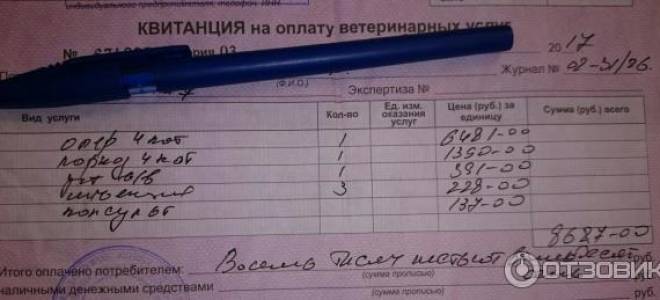 индивидуального предпринимателя, телефон, ИНН
КВИТАНЦИЯ на оплату ветеринарных услуг
№ 03 2017
(Ф.И.О.) Журнал № 02-31/26.
Экспертиза №
Вид услуги Кол-во Ед. изм. оказания услуг Цена (руб.) за единицу Сумма (руб.) всего
опер 4 кот 1 6481-00
наркоз 4 кот 1 1350-00
1 391-00
инъекция 3 228-00
консульт 137-00
8687-00
Итого оплачено потребителем: Восемь тысяч шестьсот руб.
(сумма прописью)
наличными денежными средствами руб.
(сумма прописью)
ОТЗОВИК